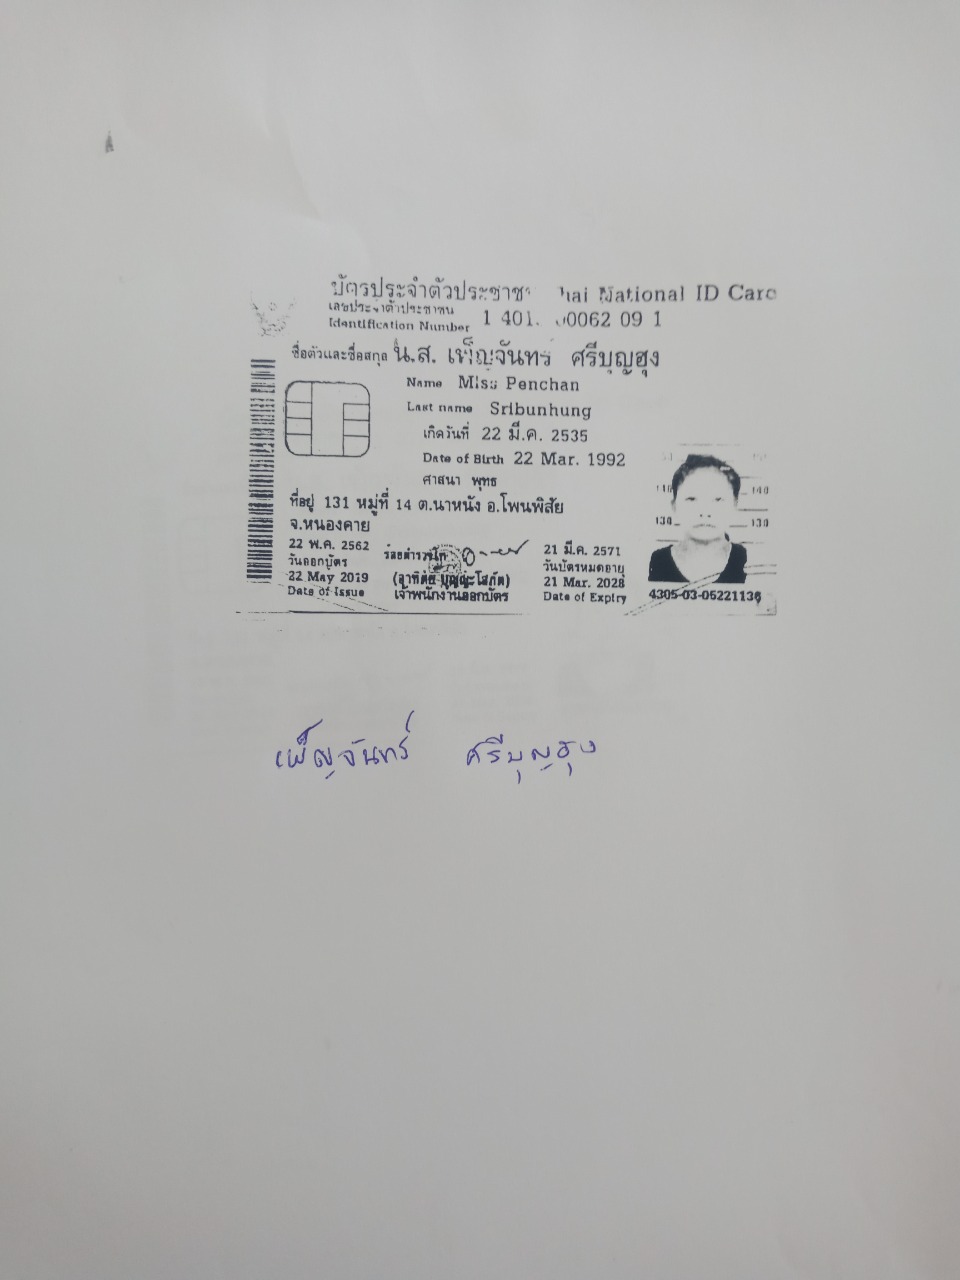 บัตรประจำตัวประชาชน Thai National ID Card
เลขประจำตัวประชาชน
Identification Number 1 401. 00062 09 1
ชื่อตัวและชื่อสกุล น.ส. เพ็ญจันทร์ ศรีบุญฮุง
Name Miss Penchan
Last name Sribunhung
เกิดวันที่ 22 มี.ค. 2535
Date of Birth 22 Mar. 1992
ศาสนา พุทธ
ที่อยู่ 131 หมู่ที่ 14 ต.นาหนัง อ.โพนพิสัย
จ.หนองคาย
22 พ.ค. 2562
วันออกบัตร
22 May 2019
Date of Issue
ร้อยตำรวจโท
เจ้าพนักงานออกบัตร
21 มี.ค. 2571
วันบัตรหมดอายุ
21 Mar. 2028
Date of Expiry
140 140
130 130
4305-03-06221136
เพ็ญจันทร์ ศรีบุญฮุง